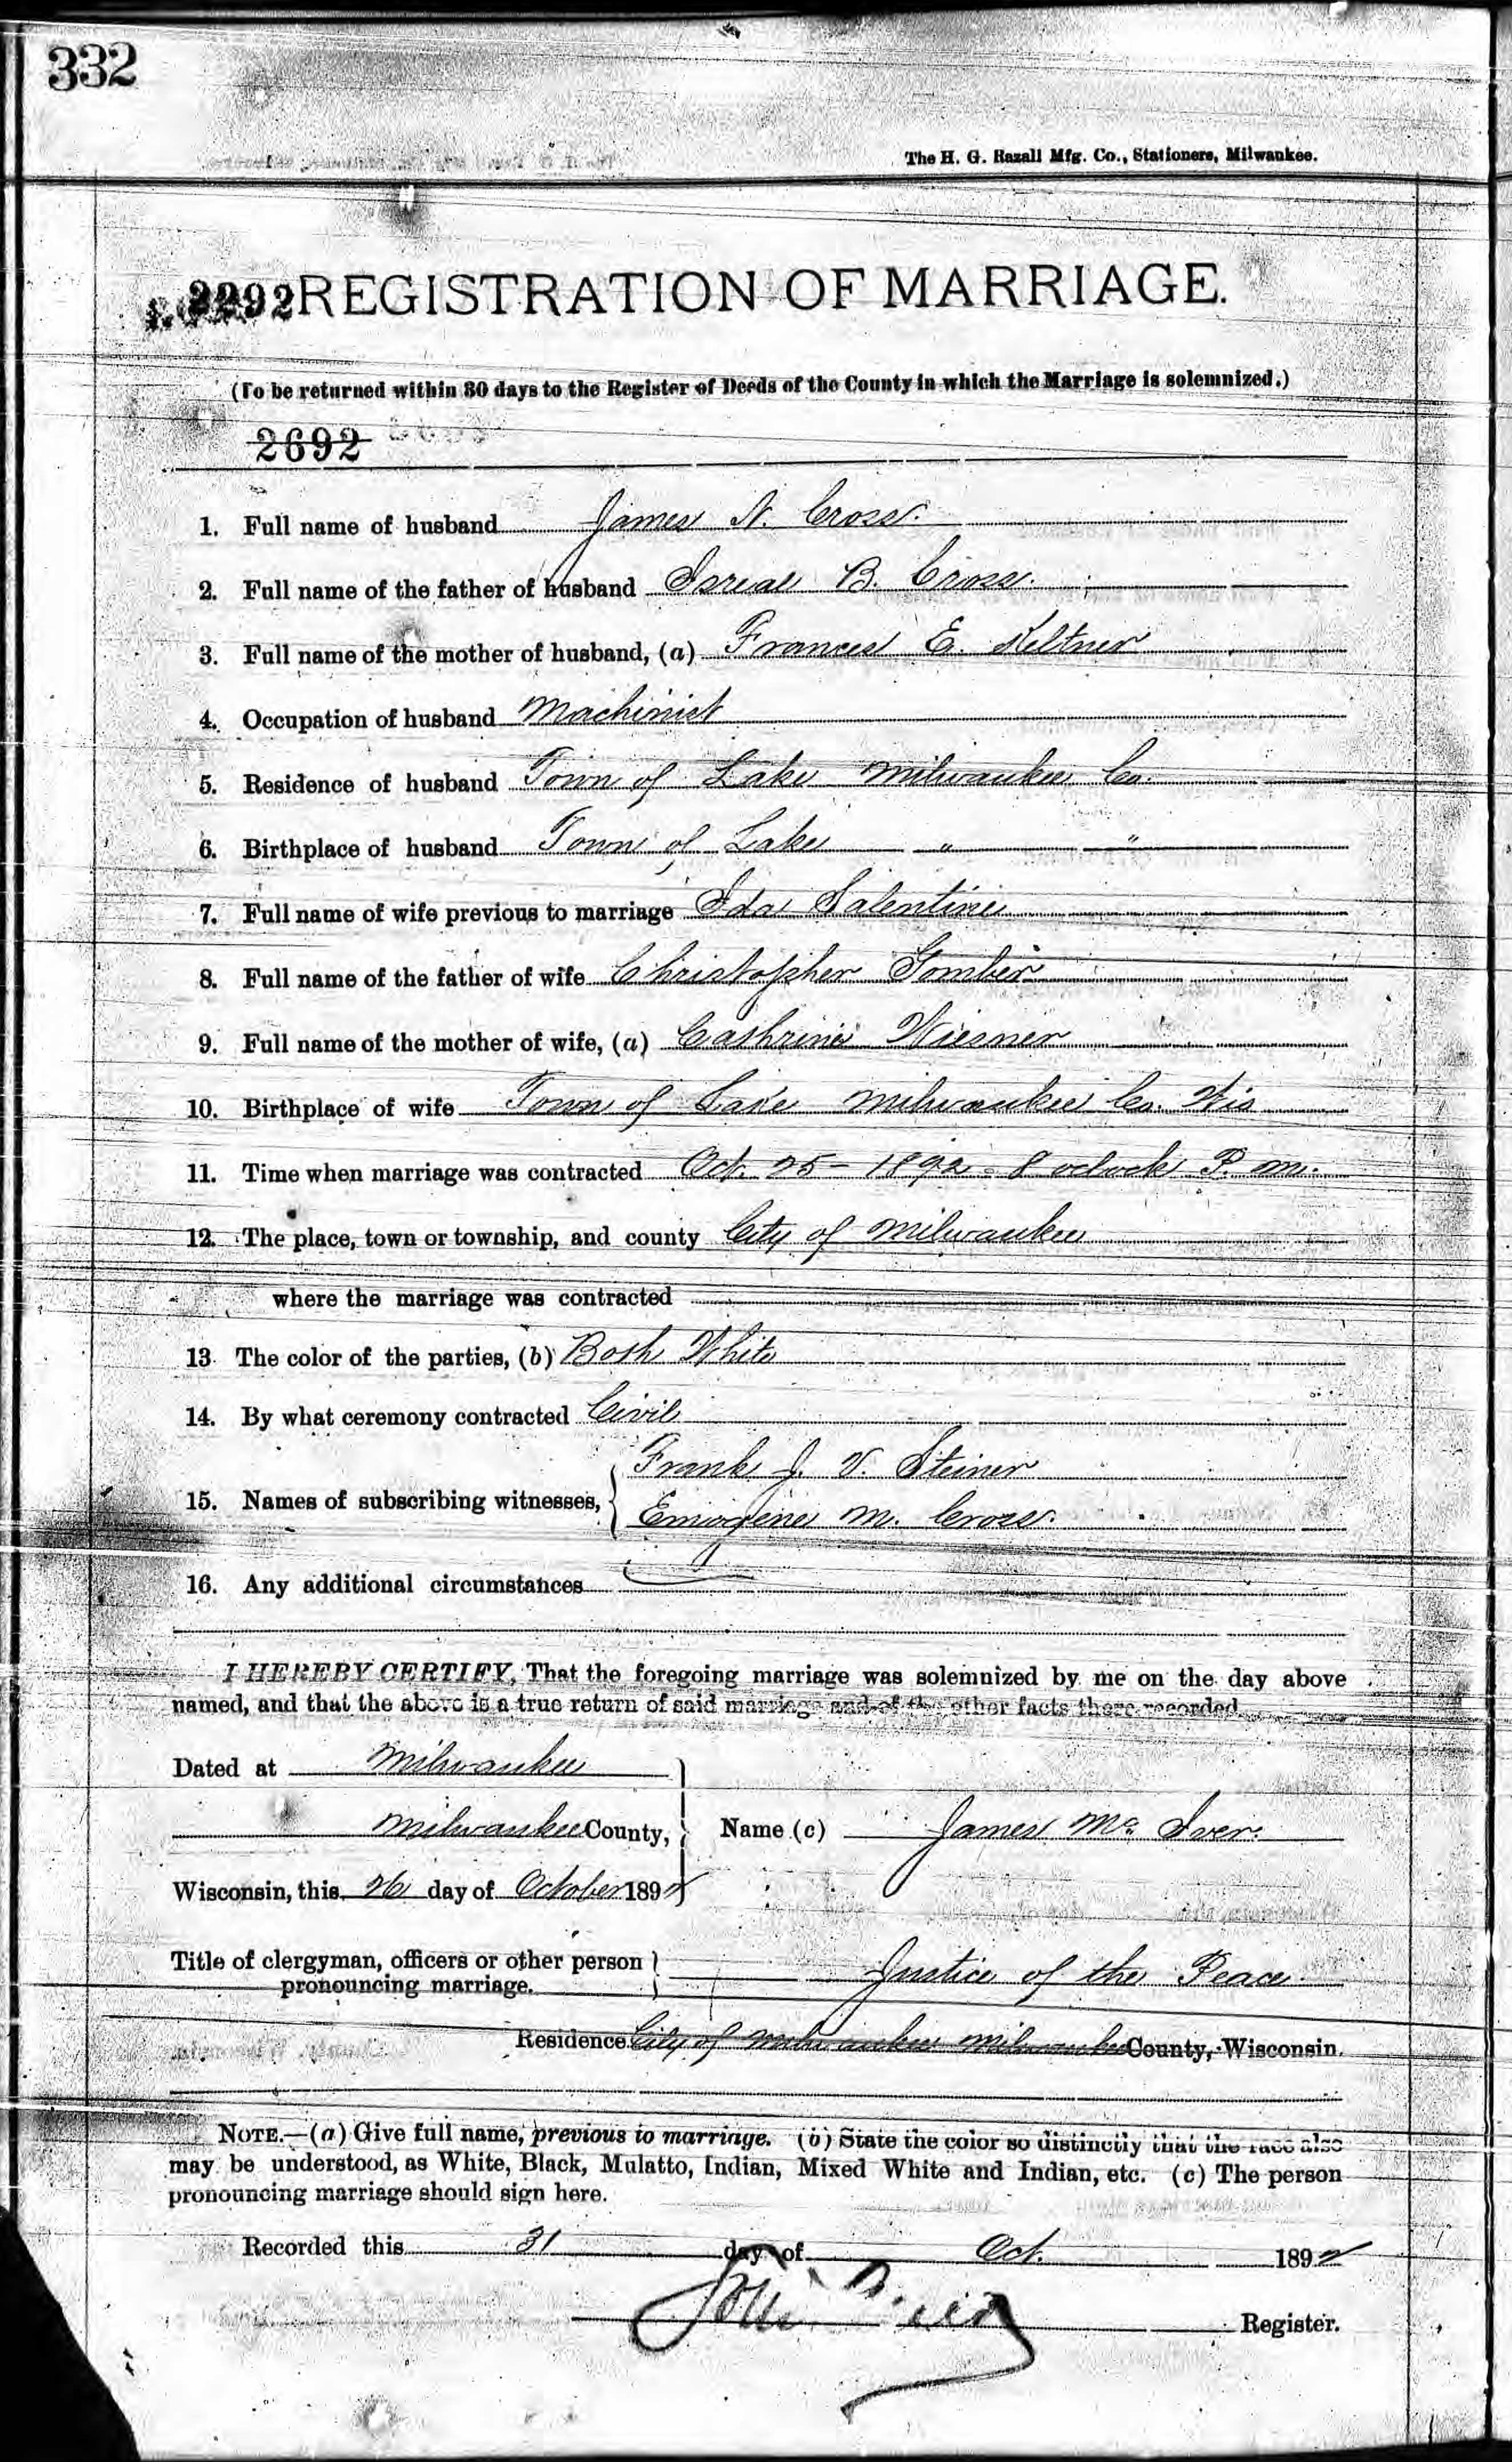 332
The H. G. Razall Mfg. Co., Stationers, Milwaukee.
2292 REGISTRATION OF MARRIAGE.
(To be returned within 30 days to the Register of Deeds of the County in which the Marriage is solemnized.)
2692
1. Full name of husband James N. Cross.
2. Full name of the father of husband Isreal B. Cross.
3. Full name of the mother of husband, (a) Frances E. Keltner
4. Occupation of husband Machinist
5. Residence of husband Town of Lake Milwaukee Co.
6. Birthplace of husband Town of Lake " "
7. Full name of wife previous to marriage Ida Salentine
8. Full name of the father of wife Christopher Gomber
9. Full name of the mother of wife, (a) Cathrine Wiesner
10. Birthplace of wife Town of Lake Milwaukee Co. Wis
11. Time when marriage was contracted Oct. 25 - 1892 - 8 oclock P. m.
12. The place, town or township, and county City of Milwaukee
where the marriage was contracted
13 The color of the parties, (b) Both White
14. By what ceremony contracted Civil
Frank J. V. Steiner
15. Names of subscribing witnesses,
Emogene M. Cross.
16. Any additional circumstances
I HEREBY CERTIFY, That the foregoing marriage was solemnized by me on the day above
named, and that the above is a true return of said marriage and of the other facts there recorded.
Dated at Milwaukee
Milwaukee County, Name (c) James Mc Iver.
Wisconsin, this 26 day of October 1892
Title of clergyman, officers or other person
pronouncing marriage. Justice of the Peace.
Residence City of Milwaukee Milwaukee County, Wisconsin.
NOTE.—(a) Give full name, previous to marriage. (b) State the color so distinctly that the race also
may be understood, as White, Black, Mulatto, Indian, Mixed White and Indian, etc. (c) The person
pronouncing marriage should sign here.
Recorded this 31 day of Oct. 1892
Register.